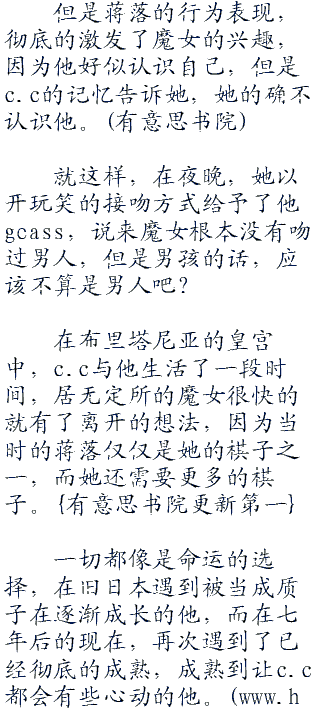 但是蒋落的行为表现，
彻底的激发了魔女的兴趣，
因为他好似认识自己，但是
c.c的记忆告诉她，她的确不
认识他。(有意思书院)
就这样，在夜晚，她以
开玩笑的接吻方式给予了他
gcass，说来魔女根本没有吻
过男人，但是男孩的话，应
该不算是男人吧？
在布里塔尼亚的皇宫
中，c.c与他生活了一段时
间，居无定所的魔女很快的
就有了离开的想法，因为当
时的蒋落仅仅是她的棋子之
一，而她还需要更多的棋
子。{有意思书院更新第一}
一切都像是命运的选
择，在旧日本遇到被当成质
子在逐渐成长的他，而在七
年后的现在，再次遇到了已
经彻底的成熟，成熟到让c.c
都会有些心动的他。(www.h